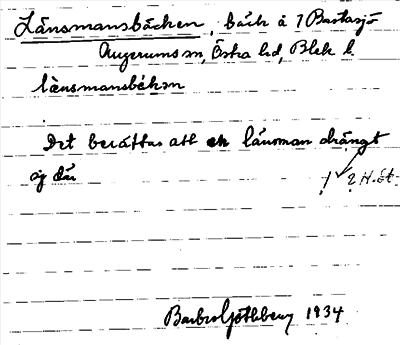 Länsmansbäcken, bäck å 7 Bastasjö
Augerums sn, Östra hd, Blek. l.
länsmansbékɐn
Det berättas att en länsman drängt
sig där
1 2 H. öt.
Barbro Göthberg 1934